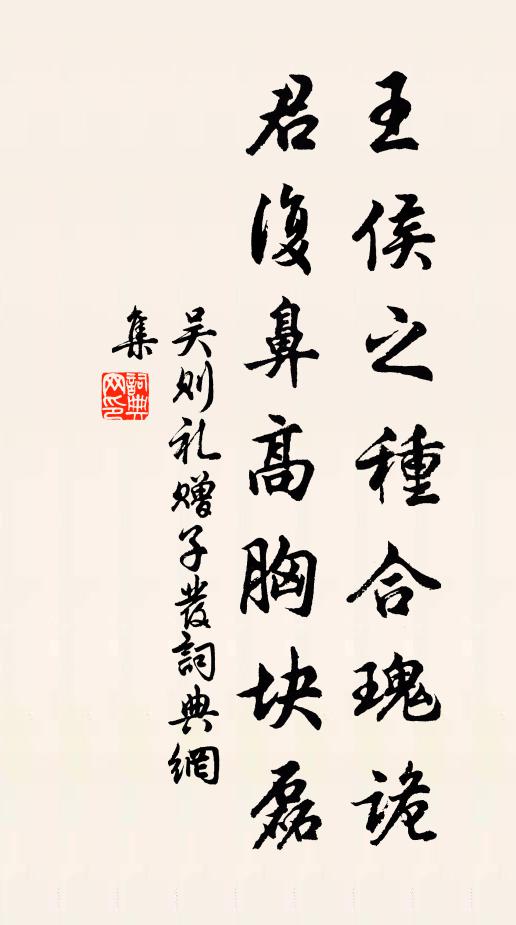 王侯之種合瑰詭
君復鼻高胸块磊
吴则礼赠子發詞典網
集
詞典网印